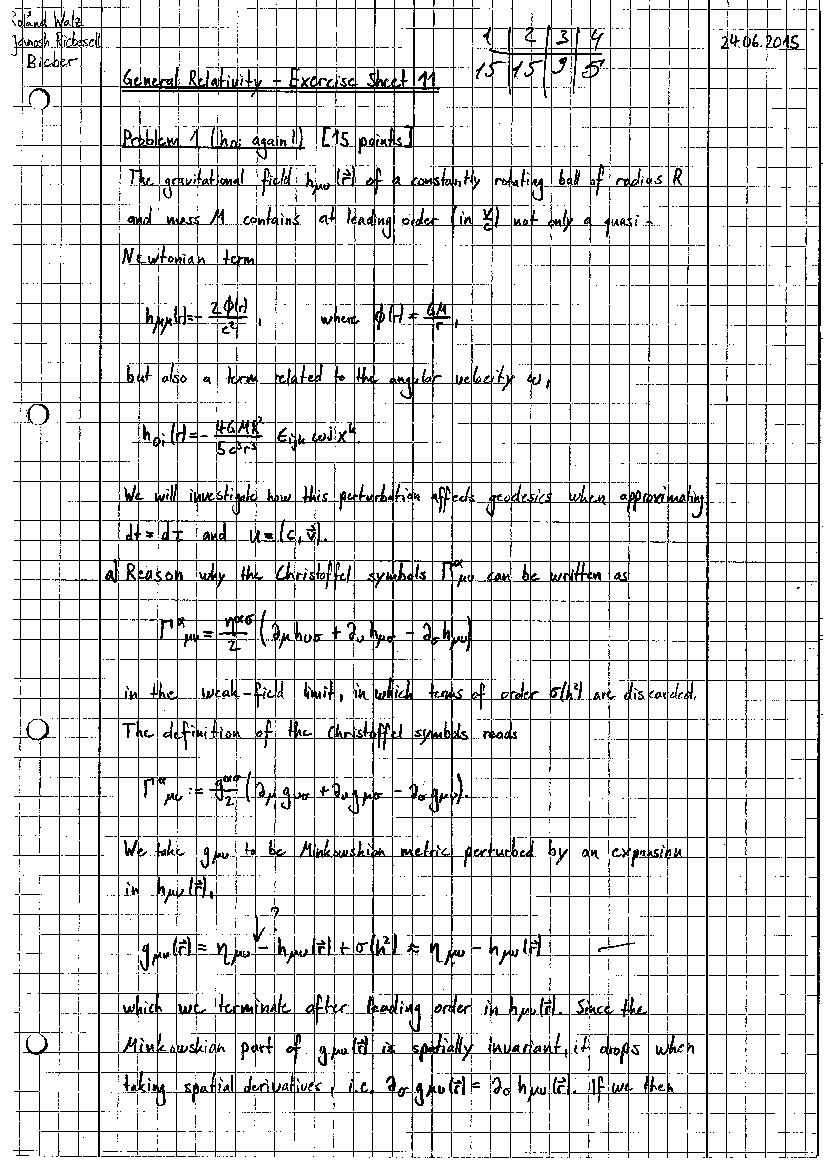 Roland Walz
Janosh Riebesell
Bieber
1 | 2 | 3 | 4
15 | 15 | 9 | 5
24.06.2015
General Relativity – Exercise Sheet 11
Problem 1 (h₀ᵢ again!) [15 points]
The gravitational field h_μν(r⃗) of a constantly rotating ball of radius R
and mass M contains at leading order (in v/c) not only a quasi-
Newtonian term
h_μμ(r) = - 2ϕ(r)/c², where ϕ(r) = GM/r,
but also a term related to the angular velocity ω,
h₀ᵢ(r) = - 4GMR²/5c³r³ ε_ijk ω^j x^k
We will investigate how this perturbation affects geodesics when approximating
dt = dτ and u = (c, v⃗).
a) Reason why the Christoffel symbols Γ^α_μν can be written as
Γ^α_μν = η^ασ/2 (∂_μ h_νσ + ∂_ν h_μσ - ∂_σ h_μν)
in the weak-field limit, in which terms of order σ(h²) are discarded.
The definition of the Christoffel symbols reads
Γ^α_μν := g^ασ/2 (∂_μ g_νσ + ∂_ν g_μσ - ∂_σ g_μν).
We take g_μν to be Minkowskian metric perturbed by an expansion
in h_μν(r⃗),
?
g_μν(r⃗) = η_μν - h_μν(r⃗) + σ(h²) ≈ η_μν - h_μν(r⃗)
which we terminate after leading order in h_μν(r⃗). Since the
Minkowskian part of g_μν(r⃗) is spatially invariant, it drops when
taking spatial derivatives, i.e. ∂_σ g_μν(r⃗) = ∂_σ h_μν(r⃗). If we then